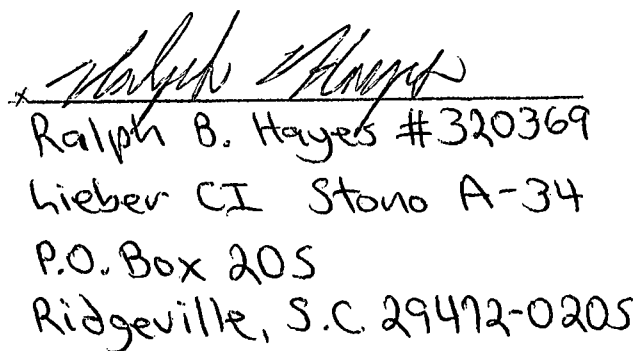 x Ralph Hayes
Ralph B. Hayes #320369
Lieber CI Stono A-34
P.O. Box 205
Ridgeville, S.C. 29472-0205